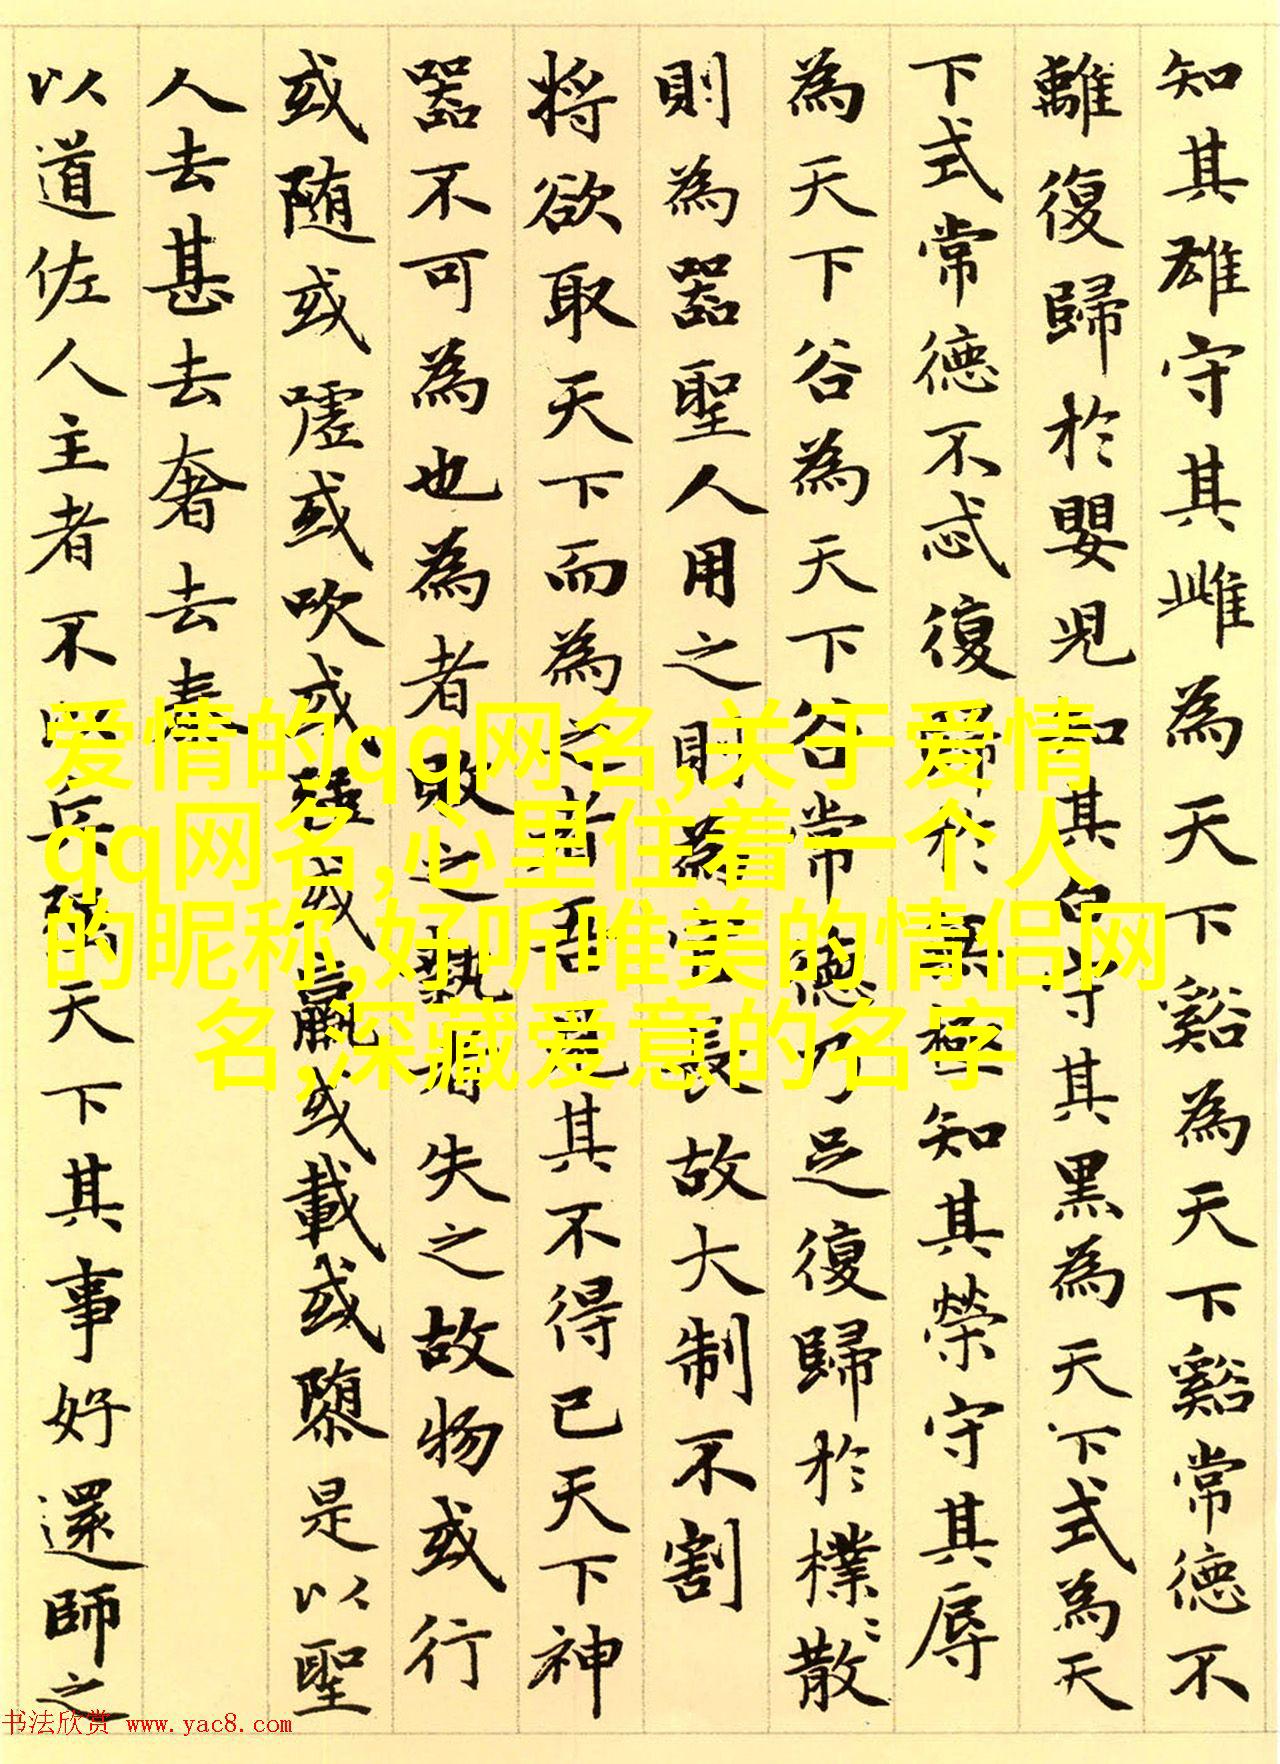 知其雄守其雌為天下谿為天下谿常德不
離復歸於嬰児知其白守其黑為天下式為天
下式常德不忒復歸於無極知其榮守其辱
為天下谷為天下谷常德乃足復歸於樸〻散
則為器聖人用之則為官長故大制不割
将欲取天下而為之者吾見其不得已天下神
器不可為也為者敗之執者失之故物或行
或随或嘘或吹或強或羸或載或隳是以聖
人去甚去奢去泰
以道佐人主者不以兵強天下其事好還師之
爱情的qq网名,关于爱情
qq网名,心里住着一个人
的昵称,好听唯美的情侣网
名,深藏爱意的名字
书法欣赏 www.yac8.com